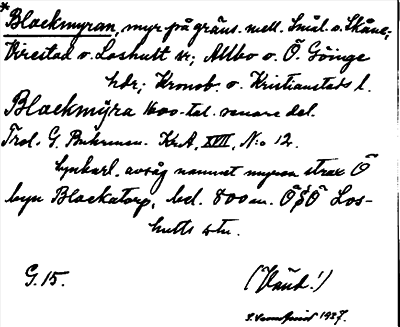 *Blackmyran, myr på gräns mell. Smål. o. Skåne;
Virestad o. Loshult sr; Allbo o. Ö. Göinge
hdr; Kronob. o. Kristianstads l.
Blackmyra 1600-tal. senare del.
Trol. G. Buhrmen. KrA, XVII, N:o 12.
avsåg namnet myren strax Ö
byn Blackatorp, bel. 800 m. ÖSÖ Los-
hults stn.
G. 15.
1927.